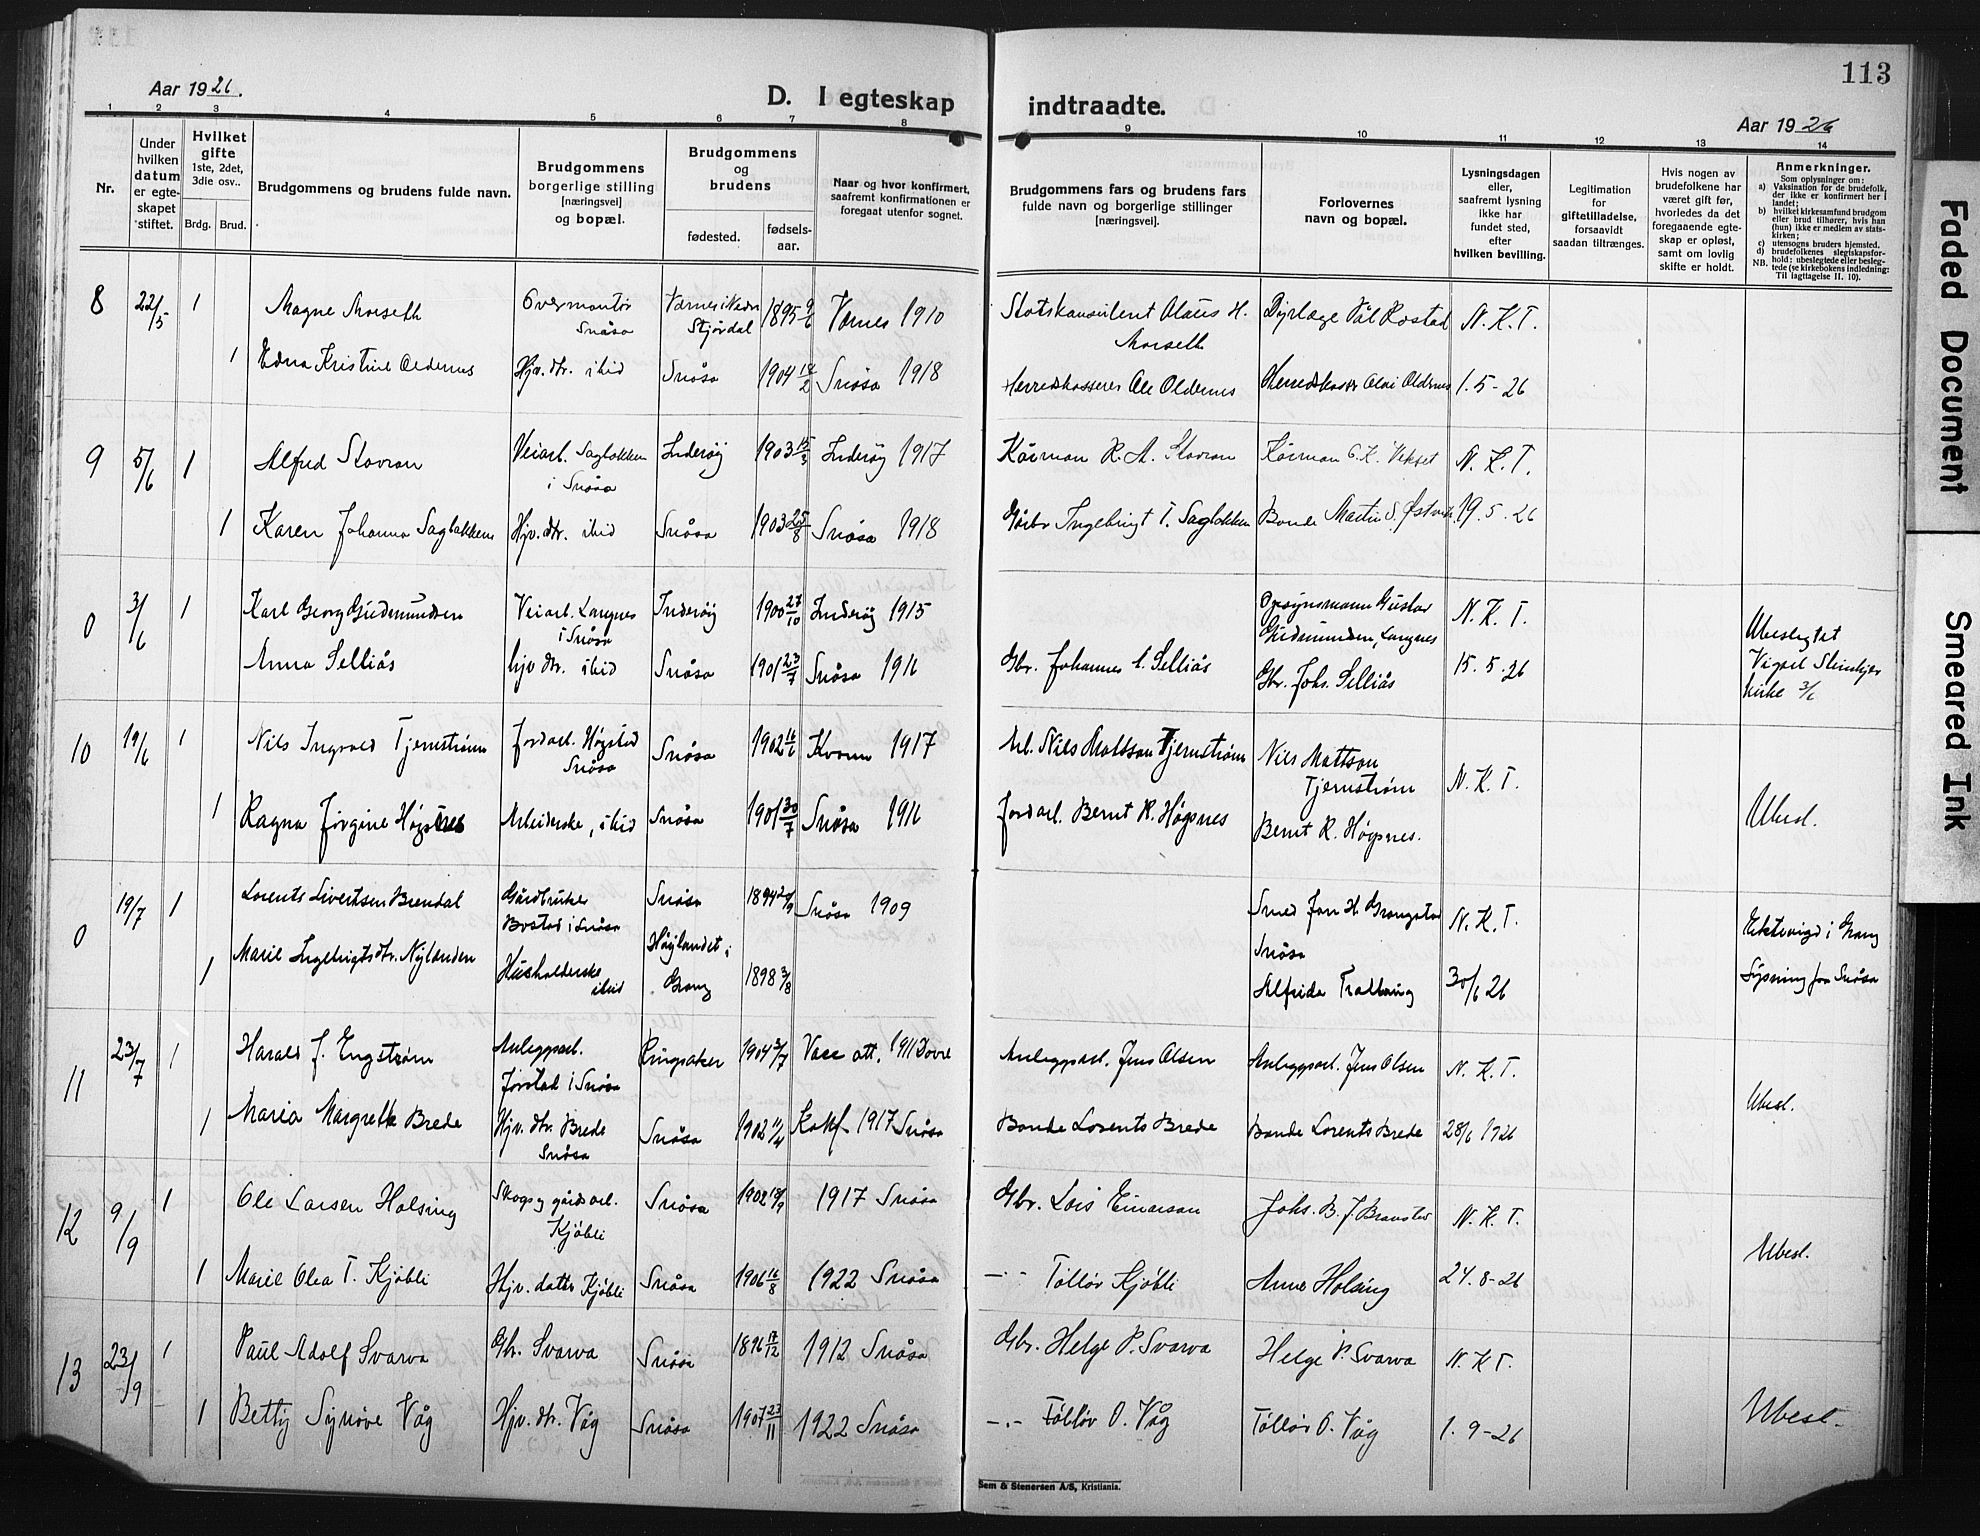 113
Aar 1926.
D. I egteskap indtraadte.
Aar 1926
1 2 3 4 5 6 7 8 9 10 11 12 13 14
Nr.
Under hvilken datum er egteskapet stiftet.
Hvilket gifte 1ste, 2det, 3die osv..
Brdg. Brud.
Brudgommens og brudens fulde navn.
Brudgommens borgerlige stilling [næringsvei] og bopæl.
Brudgommens og brudens
fødested. fødselsaar.
Naar og hvor konfirmert, saafremt konfirmationen er foregaat utenfor sognet.
Brudgommens fars og brudens fars fulde navn og borgerlige stillinger [næringsvei].
Forlovernes navn og bopæl.
Lysningsdagen eller, saafremt lysning ikke har fundet sted, efter hvilken bevilling.
Legitimation for giftetilladelse, forsaavidt saadan tiltrænges.
Hvis nogen av brudefolkene har været gift før, hvorledes da det foregaaende egteskap er opløst, samt om lovlig skifte er holdt.
Anmerkninger.
Som oplysninger om:
a) Vaksination for de brudefolk, der ikke er konfirmert her i landet;
b) hvilket kirkesamfund brudgom eller brud tilhører, hvis han (hun) ikke er medlem av statskirken;
c) utensogns bruders hjemsted.
d) brudefolkenes slegtskapsforhold: ubeslegtede eller beslegtede (se kirkebokens indledning: NB. Til Iagttagelse II. 10).
8 22/5 1 Magne Morseth Overmontør Snåsa Værnes i Nedre Stjørdal 1895 9/6 Værnes 1910 Statskonsulent Olaus H. Morseth Dyrlæge Pål Rostad N. K. T.
1 Edna Kristine Oldernes Hjv. dtr. ibid Snåsa 1904 18/2 Snåsa 1918 Herredskasserer Ole Oldernes Herredskass Olai Oldernes 1. 5 - 26
9 5/6 1 Alfred Stavran Veiarb. Saglokken i Snåsa Inderøy 1903 15/3 Inderøy 1917 Kårman R. A. Stavran Kårman O. K. Vekset N. K. T.
1 Karen Johanna Saglokken Hjv. dtr. ibid Snåsa 1903 25/8 Snåsa 1918 Gårbr Ingebrigt T. Saglokken Bonde Martin S. Østvik 19. 5. 26
0 3/6 1 Karl Georg Gudmundsen Veiarb. Langnes i Snåsa Inderøy 1900 27/10 Inderøy 1915 Opsynsmann Gustav Gudmundsen, Langnes N. K. T.
Anna Selliås hjv dtr. ibid Snåsa 1901 23/7 Snåsa 1916 Gbr. Johannes A. Selliås Gbr. Johs. Selliås 15. 5. 26 Ubeslegtet Vigsel Steinkjer kirke 3/6
10 19/6 1 Nils Ingvald Tjernstrøm Jordarb. Høgstad Snåsa Snåsa 1902 16/6 Kvam 1917 Arb. Nils Mattson Tjernstrøm Nils Mattson Tjernstrøm N. K. T.
1 Ragna Jørgine Høgsnes Arbeiderske, ibid Snåsa 1901 30/7 Snåsa 1916 Jordarb. Bernt R. Høgsnes Bernt R. Høgsnes. Ubesl.
0 19/7 1 Lorents Sivertsen Brendal Gårdbruker Bostad i Snåsa Snåsa 1894 20/9 Snåsa 1909 Smed Jon H. Grongstad Snåsa N. K. T.
1 Marie Ingebrigtsdtr. Nylanden Husholderske ibid Høylandet i Grong 1898 3/8 Alfrida Trollaug 30/6 26 Ektevigd i Grong Lysning fra Snåsa
11 23/7 1 Harald J. Engstrøm Anleggsarb. Jørstad i Snåsa Ringsaker 1904 3/7 Vacc att. 1911 Dovre Anleggsarb. Jens Olsen Anleggsarb. Jens Olsen N. K. T.
1 Maria Margrethe Brede Hjv. dtr. Brede Snåsa Snåsa 1902 11/4 Konf. 1917 Snåsa Bonde Lorents Brede Bonde Lorents Brede 28/6 1926 Ubesl.
12 9/9 1 Ole Larsen Holsing Skogs og gårdsarb. Kjøbli Snåsa 1902 18/9 1917 Snåsa Gbr. Lars Einarson Johs. B. J. Branstad N. K. T.
1 Marie Olea T. Kjøbli Hjv. datter Kjøbli Snåsa 1906 16/8 1922 Snåsa -.- Tølløv Kjøbli Anne Holsing 24. 8 - 26 Ubesl.
13 23/9 1 Paul Adolf Svarva Gbr. Svarva Snåsa 1896 17/12 1912 Snåsa Gbr. Helge P. Svarva Helge P. Svarva N. K T.
1 Betty Synøve Våg Hjv. dtr. Våg Snåsa 1907 23/11 1922 Snåsa -.- Tølløv O. Våg Tølløv O. Våg 1. 9 - 26 Ubesl.
Sem & Stenersen A/S, Kristiania.
Faded Document
Smeared Ink